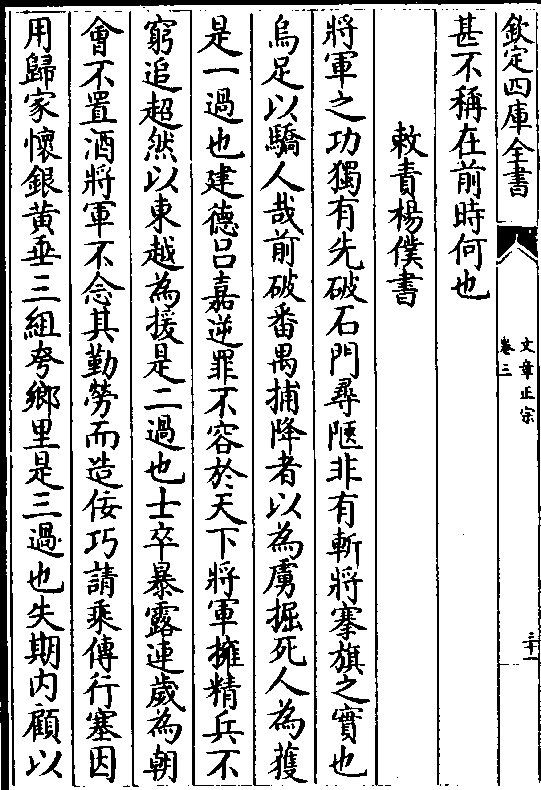 欽定四庫全書
文章正宗
卷三
三十一
甚不稱在前時何也
敕責楊僕書
將軍之功獨有先破石門尋陿非有斬將搴旗之實也
烏足以驕人哉前破番禺捕降者以為虜掘死人為獲
是一過也建德吕嘉逆罪不容於天下將軍擁精兵不
窮追超然以東越為援是二過也士卒暴露連歲為朝
會不置酒將軍不念其勤勞而造佞巧請乘傳行塞因
用歸家懷銀黄垂三組夸鄉里是三過也失期内顧以